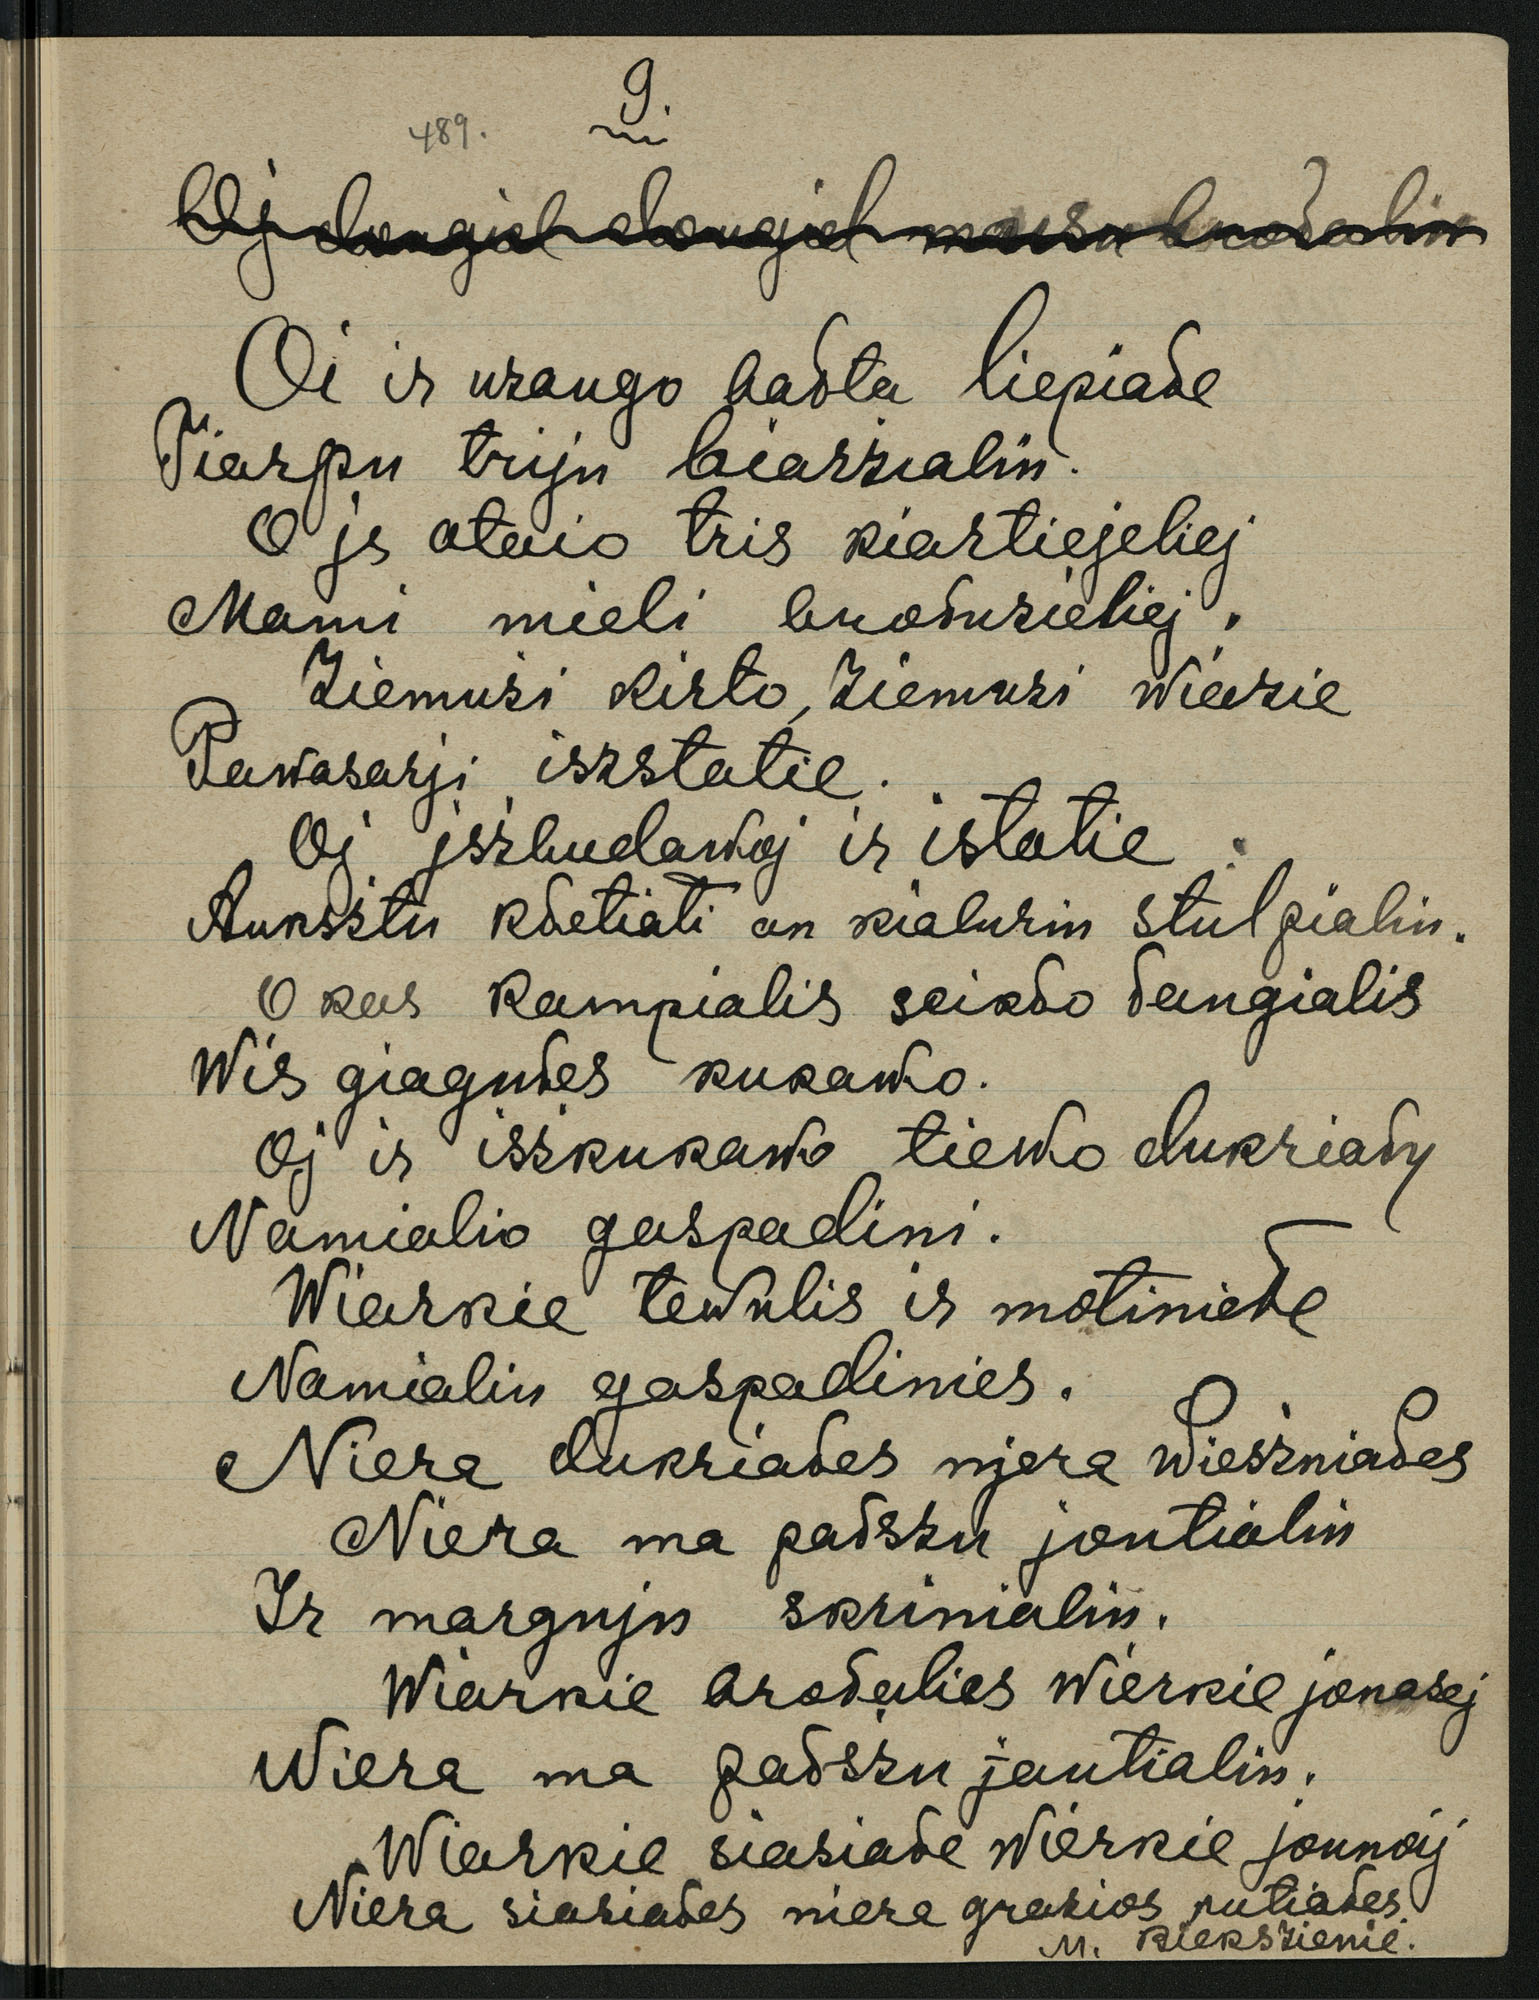 489.
9.
Oj dangiel dangiel
Oi ir uzaugo bałta liepiałe
Tiarpu triju biarżialiu.
O js atajo tris kiartiejeliej
Mami mieli brołuzieliej.
Ziemuzi kirto, ziemuzi wieżie
Pawasarji iszstatie.
Oj jszbudawoj ir istatie
Auksztu kłetiati an kialuriu stulpialiu.
O kas kampialis seikło łangialis
Wis giagułes kukawo.
Oj ir iszkukawo tiewo dukriały
Namialio gaspadini.
Wiarkie tewulis ir motiniełe
Namialiu gaspadinies.
Niera dukriałes njera Wieszniałes
Niera ma pałszu jautialiu
Ir marguju skrinialiu.
Wiarkie brołalies wierkie jonasej
Niera ma pałszu jautialiu.
Wiarkie siasiałe wierkie jaunoij
Niera siasiałes niera grazios rutiałes.
M. Kiekszienie.